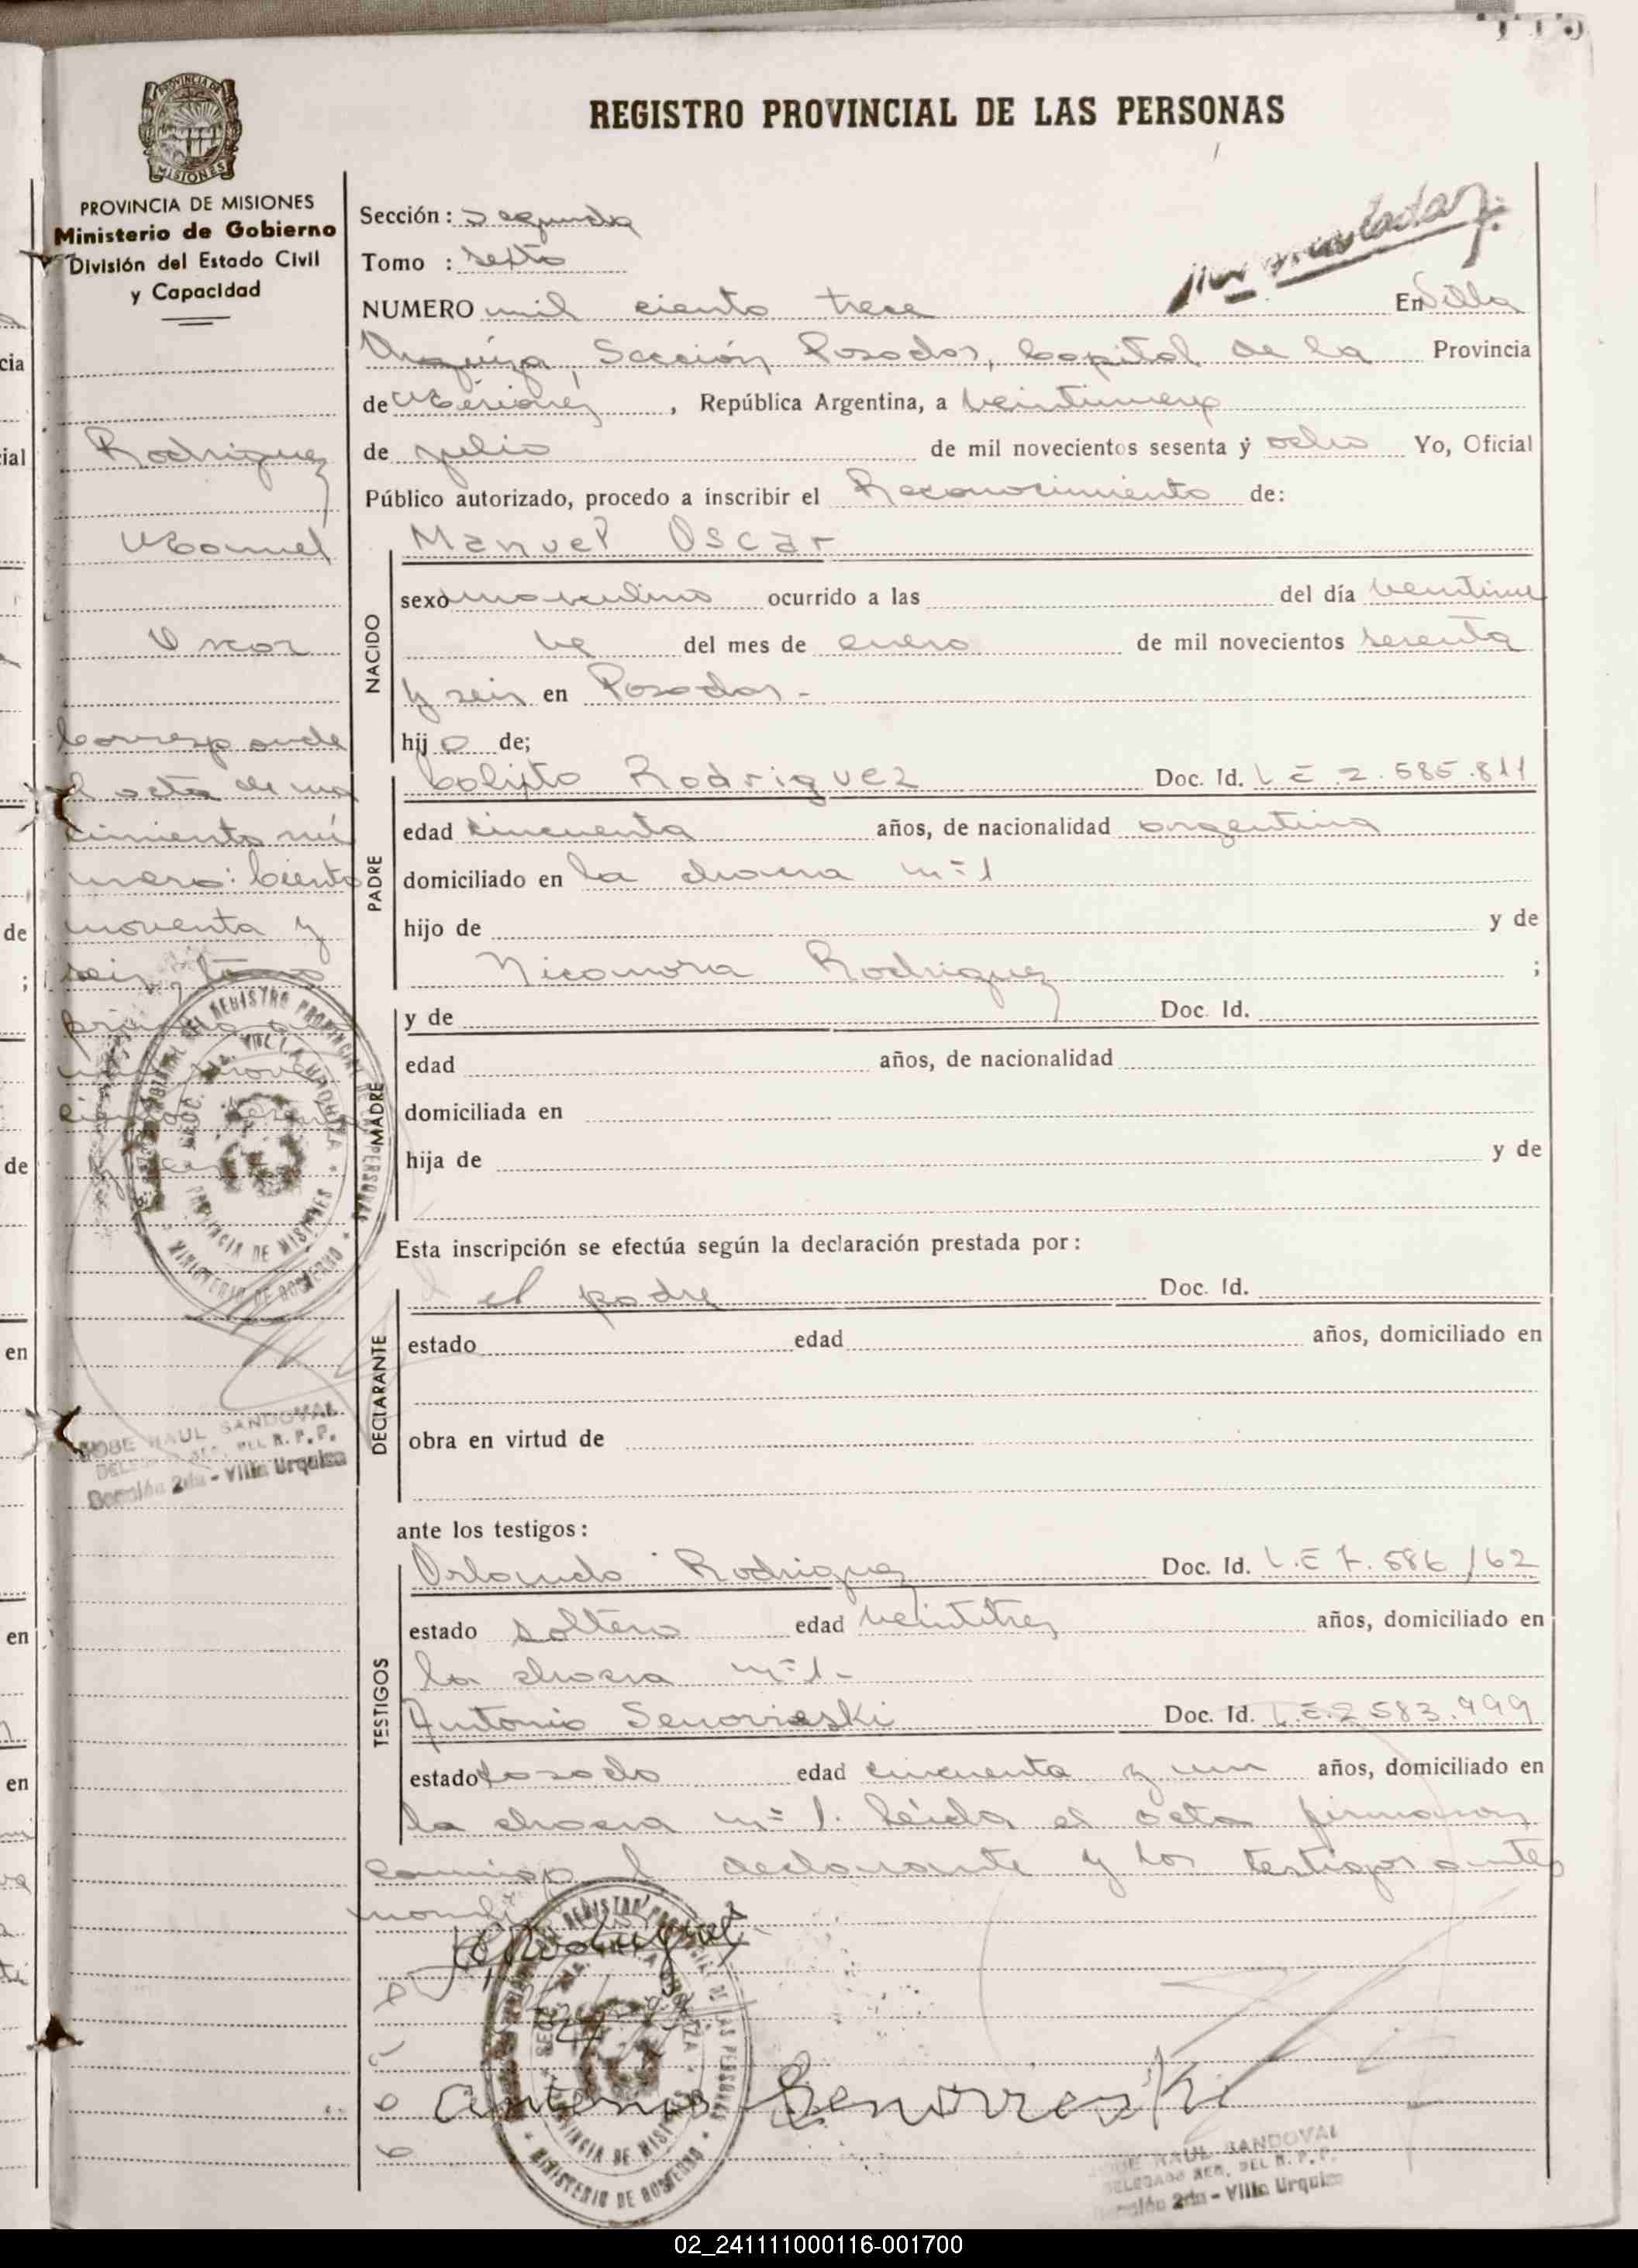 REGISTRO PROVINCIAL DE LAS PERSONAS
PROVINCIA DE MISIONES
Ministerio de Gobierno
División del Estado Civil
y Capacidad
Rodriguez
Manuel
Oscar
Corresponde
al acta de na
cimiento nú
mero: Ciento
noventa y
seis, tomo
primero
mil nove
cientos sesenta
y seis
JOSE RAUL SANDOVAL
DELEGADO REG. DEL R. P. P.
Sección 2da - Villa Urquiza
Sección: Segunda
Tomo : sexto
NUMERO mil ciento trece En Villa
Urquiza, Sección Posadas, Capital de la Provincia
de Misiones, República Argentina, a veintinueve
de julio de mil novecientos sesenta y ocho Yo, Oficial
Público autorizado, procedo a inscribir el Reconocimiento de:
NACIDO
Manuel Oscar
sexo masculino ocurrido a las del día veintinue
ve del mes de enero de mil novecientos sesenta
y seis en Posadas.-
hijo de;
PADRE
Rodriguez Doc. Id. L E 2.585.811
edad cincuenta años, de nacionalidad argentina
domiciliado en la chacra nº 1
hijo de y de
Nicomora Rodriguez ;
MADRE
y de Doc. Id.
edad años, de nacionalidad
domiciliada en
hija de y de
Esta inscripción se efectúa según la declaración prestada por:
DECLARANTE
el padre Doc. Id.
estado edad años, domiciliado en
obra en virtud de
ante los testigos:
TESTIGOS
Orlando Rodriguez Doc. Id. L.E 7.586/62
estado soltero edad veintitres años, domiciliado en
la chacra nº 1.-
Antonio Senovieski Doc. Id. L.E.2.583.999
estado casado edad cincuenta y un años, domiciliado en
la chacra nº 1. Leída el acta firmaron
conmigo el declarante y los testigos antes
Rodriguez
Antonio
JOSE RAUL SANDOVAL
DELEGADO REG. DEL R. P. P.
Sección 2da - Villa Urquiza
02_241111000116-001700